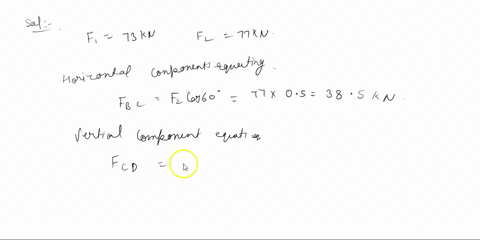 Sol:-
F₁ = 73 KN F₂ = 77 KN.
Horizontal components equating
F_BC = F₂ Cos 60° = 77 x 0.5 = 38.5 KN.
Vertical component equating
F_CD =